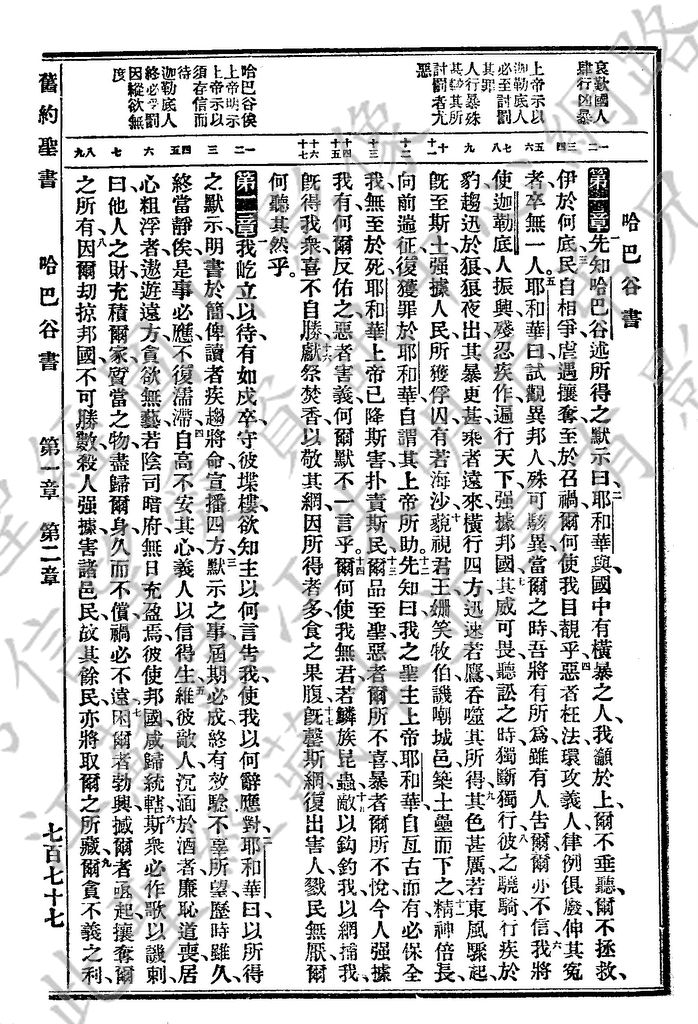 哈巴谷書
第一章先知哈巴谷述所得之默示曰耶和華與國中有橫暴之人我籲於上爾不垂聽爾不拯救
伊於何底民自相爭虐遇攘奪至於召禍爾何使我目覩乎惡者枉法環攻義人律例俱廢伸其冤
者卒無一人耶和華曰試觀異邦人殊可駭異當爾之時吾將有所為雖有人告爾爾亦不信我將
使迦勒底人振興殘忍疾作遍行天下强據邦國其威可畏聽訟之時獨斷獨行彼之驍騎行疾於
豹趨迅於狼狼夜出其暴更甚乘者遠來橫行四方迅速若鷹吞噬其所得其色甚厲若東風驟起
旣至斯土强據人民所獲俘囚有若海沙藐視君王姍笑牧伯譏嘲城邑築土壘而下之精神倍長
向前遄征復獲罪於耶和華自謂其上帝所助先知曰我之聖主上帝耶和華自亙古而有必保全
我無至於死耶和華上帝已降斯害扑責斯民爾品至聖惡者爾所不喜暴者爾所不悅今人强據
我有何爾反佑之惡者害義何爾默不一言乎爾何使我無君若鱗族昆蟲敵以鈎釣我以網擒我
旣得我衆喜不自勝獻祭焚香以敬其網因所得者多食之果腹旣罄斯網復出害人戮民無厭爾
何聽其然乎
第二章我屹立以待有如戍卒守彼堞樓欲知主以何言告我使我以何辭應對耶和華曰以所得
之默示明書於簡俾讀者疾趨將命宣播四方默示之事屆期必成終有效驗不辜所望歷時雖久
終當靜俟是事必應不復濡滯自高不安其心義人以信得生維彼敵人沉湎於酒者廉恥道喪居
心粗浮者遨遊遠方貪欲無藝若陰司暗府無日充盈焉彼使邦國咸歸統轄斯衆必作歌以譏刺
曰他人之財充積爾家質當之物盡歸爾身久而不償禍必不遠困爾者勃興撼爾者亟起攘奪爾
之所有因爾刧掠邦國不可勝數殺人强據害諸邑民故其餘民亦將取爾之所藏爾貪不義之利
哀歎國人
肆行凶暴
上帝示以
迦勒底人
必至討罰
其罪
人行暴殊
甚其所
討罰者尤
惡
哈巴谷俟
上帝明示
上帝示以
須存信而
待
迦勒底人
終必受罰
因縱欲無
度
舊約聖書 哈巴谷書 第一章 第二章 七百七十七